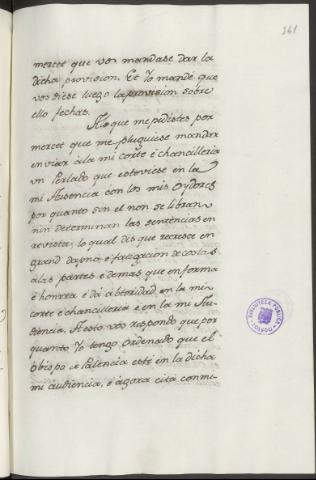 241
mercet que vos mandase dar la
dicha provision. Et Yo mandé que
vos diese luego la provision sobre
ello fechas.
Alo que me pedistes por
mercet que me pluguiese mandar
enviar à la mi corte è chancilleria
un Perlado que estoviese en la
mi Ausencia con los mis Oydores
por quanto sin el non se libran
nin determinan las sentencias en
revista, lo qual dis que recresce en
grand dapno, è fatigacion de costas
alas partes è demas que enforma
è honrra è dá abtoridad en la mi
corte è chancilleria è en la mi Au-
diencia. A esto vos respondo que por
quanto Yo tengo ordenado que el
Obispo de Palencia esté en la dicha
mi audiencia, è agora está conmi-
BIBLIOTECA PUBLICA
TOLEDO